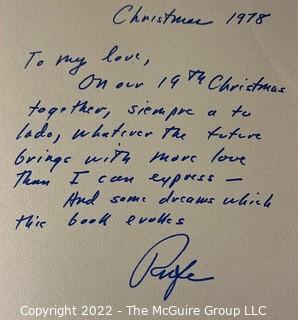 Christmas 1978
To my love,
On our 19th Christmas
together, siempre a tu
lado, whatever the future
brings with more love
than I can express —
And some dreams which
this book evokes
Copyright 2022 - The McGuire Group LLC